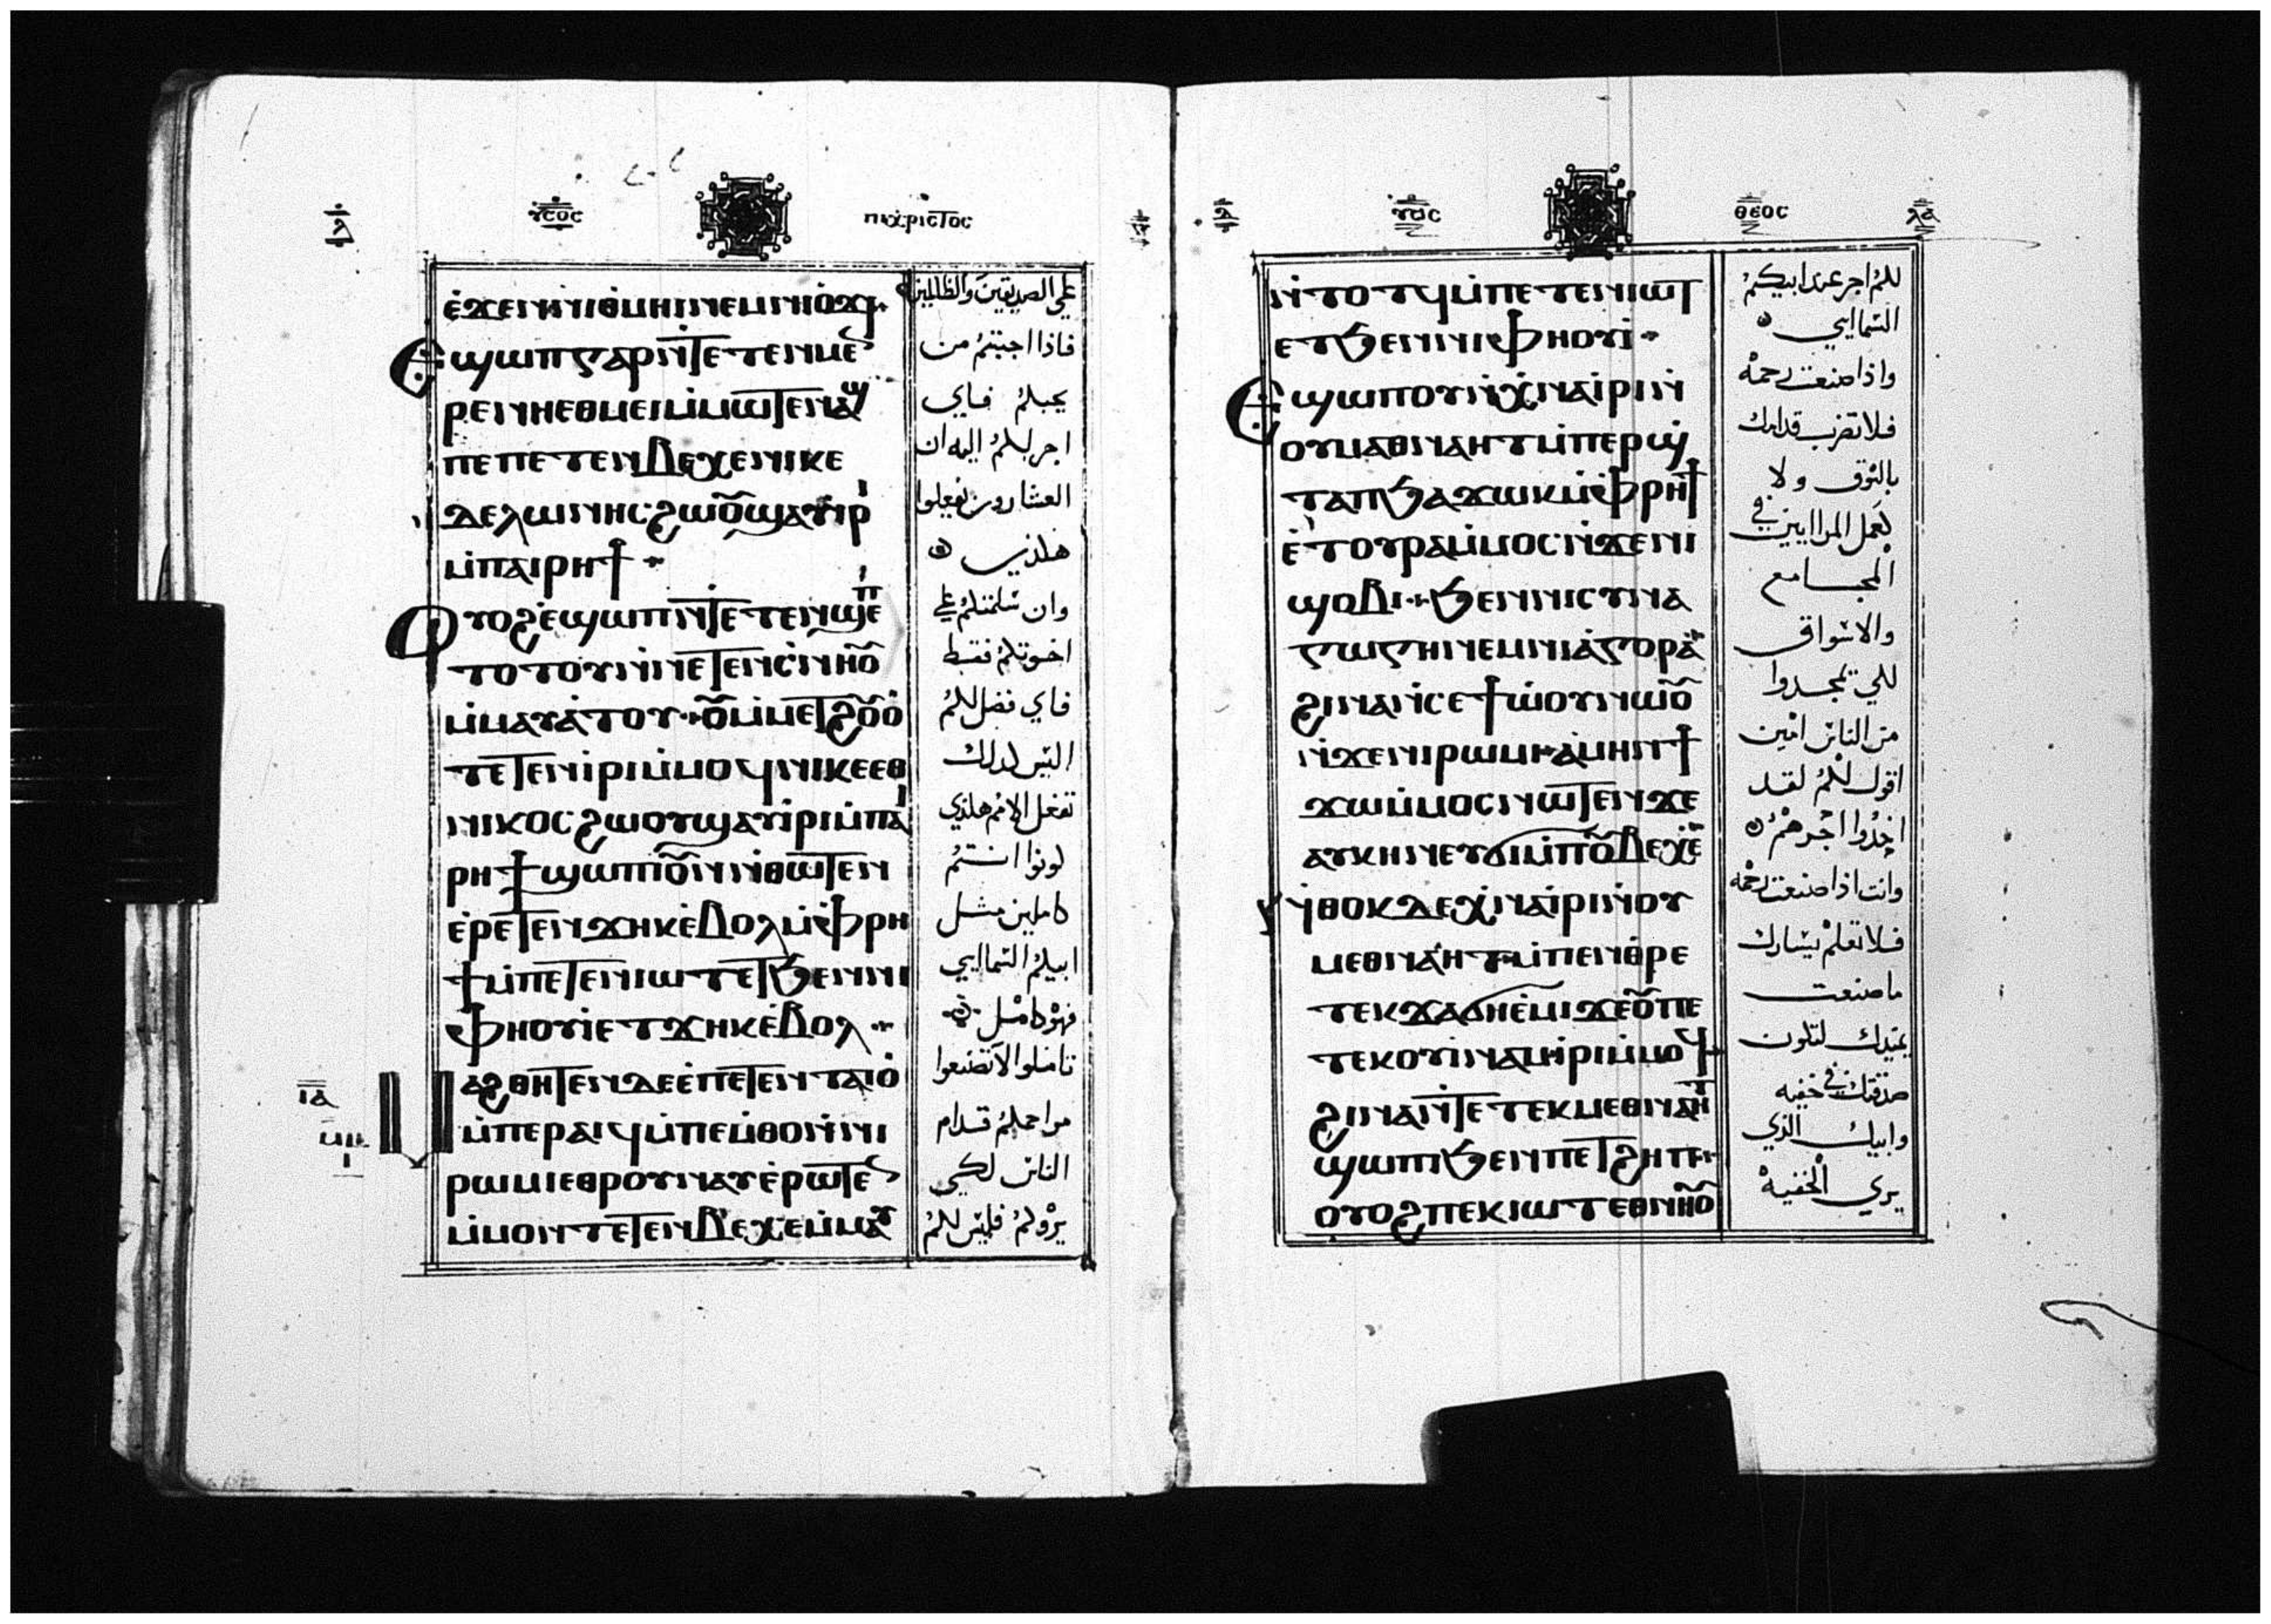 ⲓⲏⲥⲟⲩⲥ
ⲡⲓⲭⲣⲓⲥⲧⲟⲥ
ⲉ̀ϫⲉⲛⲛⲓⲑⲙⲏⲓⲛⲉⲙⲛⲓⲟ̀ϫⲓ
Ⲉϣⲱⲡⲅⲁⲣⲛ̀ⲧⲉⲧⲉⲛⲙⲉ
ⲣⲉⲛⲏⲉⲑⲙⲉⲓⲙ̀ⲙⲱⲧⲉⲛⲁϣ
ⲡⲉⲡⲉⲧⲉⲛⲃⲉⲭⲉⲛⲓⲕⲉ
ⲇⲉⲗⲱⲛⲏⲥϩⲱⲟⲩϣⲁⲩⲓⲣⲓ
ⲙ̀ⲡⲁⲓⲣⲏϯ
Ⲟⲩⲟϩⲉ̀ϣⲱⲡⲛ̀ⲧⲉⲧⲉⲛϣⲉⲡ
ⲧⲟⲧⲟⲩⲛ̀ⲛⲉⲧⲉⲛⲥ̀ⲛⲏⲟⲩ
ⲙ̀ⲙⲁⲩⲁ̀ⲧⲟⲩ ⲟⲩⲙ̀ⲙⲉⲧϩⲟⲩⲟ̀
ⲧⲉⲧⲉⲛⲓ̀ⲣⲓⲙ̀ⲙⲟϥⲛⲓⲕⲉⲉⲑ
ⲛⲓⲕⲟⲥϩⲱⲟⲩϣⲁⲩⲓ̀ⲣⲓⲙ̀ⲡⲁⲓ
ⲣⲏϯϣⲱⲡⲓⲟⲩⲛⲛ̀ⲑⲱⲧⲉⲛ
ⲉ̀ⲣⲉⲧⲉⲛϫⲏⲕⲉ̀ⲃⲟⲗⲙ̀ⲫⲣⲏ
ϯⲙ̀ⲡⲉⲧⲉⲛⲓⲱⲧⲉⲧϧⲉⲛⲛⲓ
ⲫⲏⲟⲩⲓ̀ⲉⲧϫⲏⲕⲉ̀ⲃⲟⲗ
ⲁϩⲑⲏⲧⲉⲛⲇⲉⲉ̀ⲡⲉⲧⲉⲛⲧⲁⲓⲟ̀
ⲙ̀ⲡⲉⲣⲁⲓϥⲙ̀ⲡⲉⲙ̀ⲑⲟⲛ̀ⲛⲓ
ⲣⲱⲙⲓⲉⲑⲣⲟⲩⲛⲁⲩⲉ̀ⲣⲱⲧⲉⲛ
ⲙ̀ⲙⲟⲛⲧⲉⲧⲉⲛⲃⲉⲭⲉⲙ̀ⲙⲁⲩ
ⲓⲁ
علي الصديقين والظالمين
فاذا احببتم من
يحبكم فاي
اجر لكم اليه ان
العشارون يفعلوا
هكذي
وان سلمتكم علي
اخوتكم فقط
فاي فضل لكم
اليس كذلك
تفعل الامم هكذي
كونوا انتم
كاملين مثل
ابيكم السمايي
فهو كامل
تاملوا لا تصنعوا
مراحمكم قدام
الناس لكي
يروكم فليس لكم
ⲩⲓⲟⲥ
ⲑⲉⲟⲥ
ⲗⲁ
ⲛ̀ⲧⲟⲧϥⲙ̀ⲡⲉⲧⲉⲛⲓⲱⲧ
ⲉⲧϧⲉⲛⲛⲓⲫⲏⲟⲩⲓ̀
Ⲉϣⲱⲡⲟⲩⲛⲭ̀ⲛⲁⲓ̀ⲣⲓⲛ̀
ⲟⲩⲙⲁⲑⲛⲁⲏⲧⲙ̀ⲡⲉⲣⲱϣ
ⲧⲁⲡϧⲁϫⲱⲕⲙ̀ⲫⲣⲏϯ
ⲉ̀ⲧⲟⲩⲣⲁⲙ̀ⲙⲟⲥⲛ̀ϫⲉⲛⲓ
ϣⲟⲃⲓ ϧⲉⲛⲛⲓⲥⲩⲛⲁ
ⲅⲱⲅⲏⲛⲉⲙⲛⲓⲁ̀ⲅⲟⲣⲁ
ϩⲓⲛⲁⲛ̀ⲥⲉϯⲱ̀ⲟⲩⲛⲱⲟⲩ
ⲛ̀ϫⲉⲛⲓⲣⲱⲙⲓ ⲁ̀ⲙⲏⲛϯ
ϫⲱⲙ̀ⲙⲟⲥⲛⲱⲧⲉⲛϫⲉ
ⲁⲩⲕⲏⲛⲉⲩϭⲓⲙ̀ⲡⲟⲩⲃⲉⲭⲉ
ⲛ̀ⲑⲟⲕⲇⲉⲭ̀ⲛⲁⲓ̀ⲣⲓⲛ̀ⲟⲩ
ⲙⲉⲑⲛⲁⲏⲧ ⲙ̀ⲡⲉⲛⲑⲣⲉ
ⲧⲉⲕϫⲁϭⲏⲉ̀ⲙⲓϫⲉⲟⲩⲡⲉ
ⲧⲉⲕⲟⲩⲓ̀ⲛⲁⲙⲓ̀ⲣⲓⲙ̀ⲙⲟϥ
ϩⲓⲛⲁⲛ̀ⲧⲉⲧⲉⲕⲙⲉⲑⲛⲁⲏⲧ
ϣⲱⲡⲓϧⲉⲛⲡⲉⲧϩⲏⲡ
ⲟⲩⲟϩⲡⲉⲕⲓⲱⲧⲉⲑⲛⲏⲟⲩ
لكم اجر عند ابيكم
السمايي
واذا صنعت رحمه
فلا تضرب قدامك
بالبوق ولا
كعمل المرايين في
المجامع
والاسواق
لكي يمجدوا
من الناس امين
اقول لكم لقد
اخذوا اجرهم
وانت اذا صنعت رحمه
فلا تعلم يسارك
ما صنعت
يمينك لتكون
صدقتك في خفيه
وابيك الذي
يري الخفيه